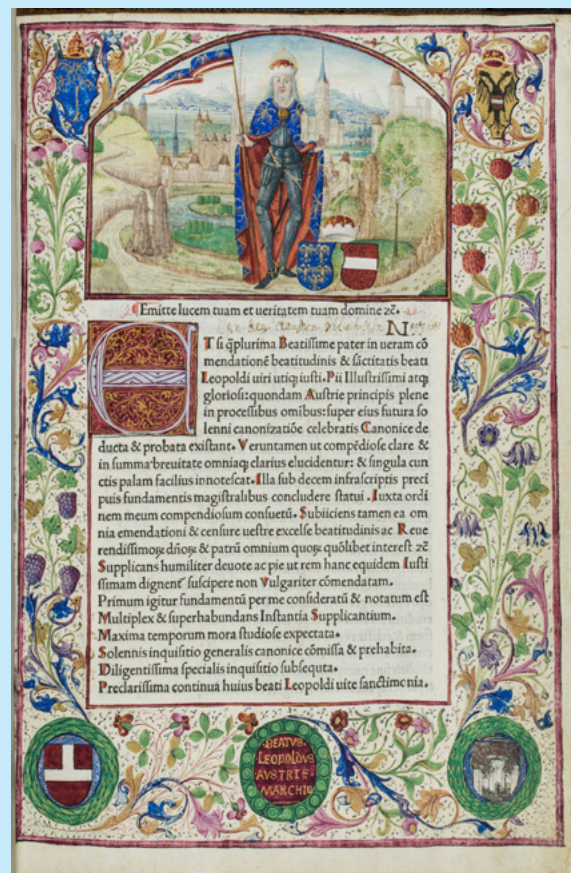 Emitte lucem tuam et ueritatem tuam domine zc̄.
ET si q̄plurima Beatissime pater in ueram cō
mendationē beatitudinis & sāctitatis beati
Leopoldi uiri utiq; iusti. Pii Illustrissimi atq;
gloriosi: quondam Austrie principis plene
in processibus omībus: super eius futura so
lenni canonizatiōe celebratis Canonice de
ducta & probata existant. Veruntamen ut compēdiose clare &
in summa breuitate omniaq; clarius elucidentur: & singula cun
ctis palam facilius innotescat. Illa sub decem infrascriptis preci
puis fundamentis magistralibus concludere statui. Iuxta ordi
nem meum compendiosum consuetū. Subiiciens tamen ea om
nia emendationi & censure uestre excelse beatitudinis ac Reue
rendissimoꝝ dn̄oꝝ & patrū omnium quoꝝ quōlibet interest zc̄
Supplicans humiliter deuote ac pie ut rem hanc equidem Iusti
ssimam dignent᷑ suscipere non Vulgariter cōmendatam.
Primum igitur fundamentū per me consideratū & notatum est
Multiplex & superhabundans Instantia Supplicantium.
Maxima temporum mora studiose expectata.
Solennis inquisitio generalis canonice cōmissa & prehabita.
Diligentissima specialis inquisitio subsequta.
Preclarissima continua huius beati Leopoldi uite sanctimonia.
BEATVS
LEOPOLDVS
AVSTRIE
MARCHIO